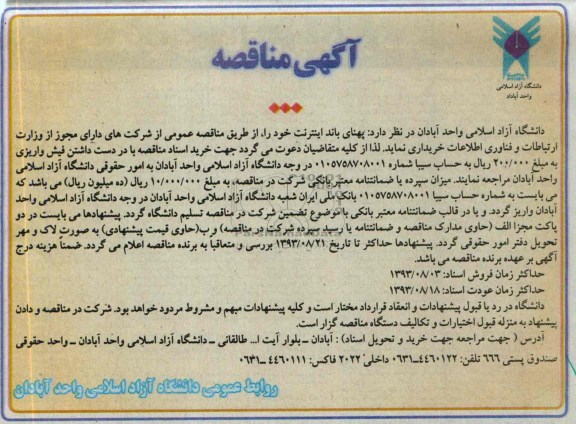 دانشگاه آزاد اسلامی
واحد آبادان
آگهی مناقصه
دانشگاه آزاد اسلامی واحد آبادان در نظر دارد: پهنای باند اینترنت خود را، از طریق مناقصه عمومی از شرکت های دارای مجوز از وزارت
ارتباطات و فناوری اطلاعات خریداری نماید. لذا از کلیه متقاضیان دعوت می گردد جهت خرید اسناد مناقصه با در دست داشتن فیش واریزی
به مبلغ ۲۰۰/۰۰۰ ریال به حساب سیبا شماره ۰۱۰۵۷۵۸۷۰۸۰۰۱ در وجه دانشگاه آزاد اسلامی واحد آبادان به امور حقوقی دانشگاه آزاد اسلامی
واحد آبادان مراجعه نمایند. میزان سپرده یا ضمانتنامه معتبر بانکی شرکت در مناقصه، به مبلغ ۱۰/۰۰۰/۰۰۰ ریال (ده میلیون ریال) می باشد که
می بایست به شماره حساب سیبا ۰۱۰۵۷۵۸۷۰۸۰۰۱ بانک ملی ایران شعبه دانشگاه آزاد اسلامی واحد آبادان در وجه دانشگاه آزاد اسلامی واحد
آبادان واریز گردد. و یا در قالب ضمانتنامه معتبر بانکی با موضوع تضمین شرکت در مناقصه تسلیم دانشگاه گردد. پیشنهادها می بایست در دو
پاکت مجزا الف (حاوی مدارک مناقصه و ضمانتنامه یا رسید سپرده شرکت در مناقصه) و ب(حاوی قیمت پیشنهادی) به صورت لاک و مهر
تحویل دفتر امور حقوقی گردد. پیشنهادها حداکثر تا تاریخ ۱۳۹۳/۰۸/۲۱ بررسی و متعاقبا به برنده مناقصه اعلام می گردد. ضمناً هزینه درج
آگهی بر عهده برنده مناقصه می باشد.
حداکثر زمان فروش اسناد: ۱۳۹۳/۰۸/۰۳
حداکثر زمان عودت اسناد: ۱۳۹۳/۰۸/۱۸
دانشگاه در رد یا قبول پیشنهادات و انعقاد قرارداد مختار است و کلیه پیشنهادات مبهم و مشروط مردود خواهد بود. شرکت در مناقصه و دادن
پیشنهاد به منزله قبول اختیارات و تکالیف دستگاه مناقصه گزار است.
آدرس ( جهت مراجعه جهت خرید و تحویل اسناد) : آبادان ـ بلوار آیت ا... طالقانی ـ دانشگاه آزاد اسلامی واحد آبادان ـ واحد حقوقی
صندوق پستی ۶۶۶ تلفن: ۴۴۶۰۱۲۲-۰۶۳۱ داخلی ۲۰۲۲ فاکس: ۴۴۶۰۱۱۱-۰۶۳۱
روابط عمومی دانشگاه آزاد اسلامی واحد آبادان